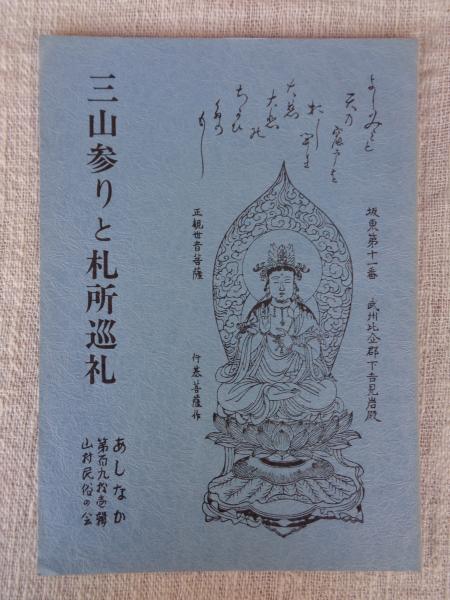 坂東第十一番 武州比企郡下吉見岩殿
よしみよと
天乃
大慈
大悲
ちかひ
正観世音菩薩 行基菩薩作
三山参りと札所巡礼
あしなか
第百九拾壱輯
山村民俗の会